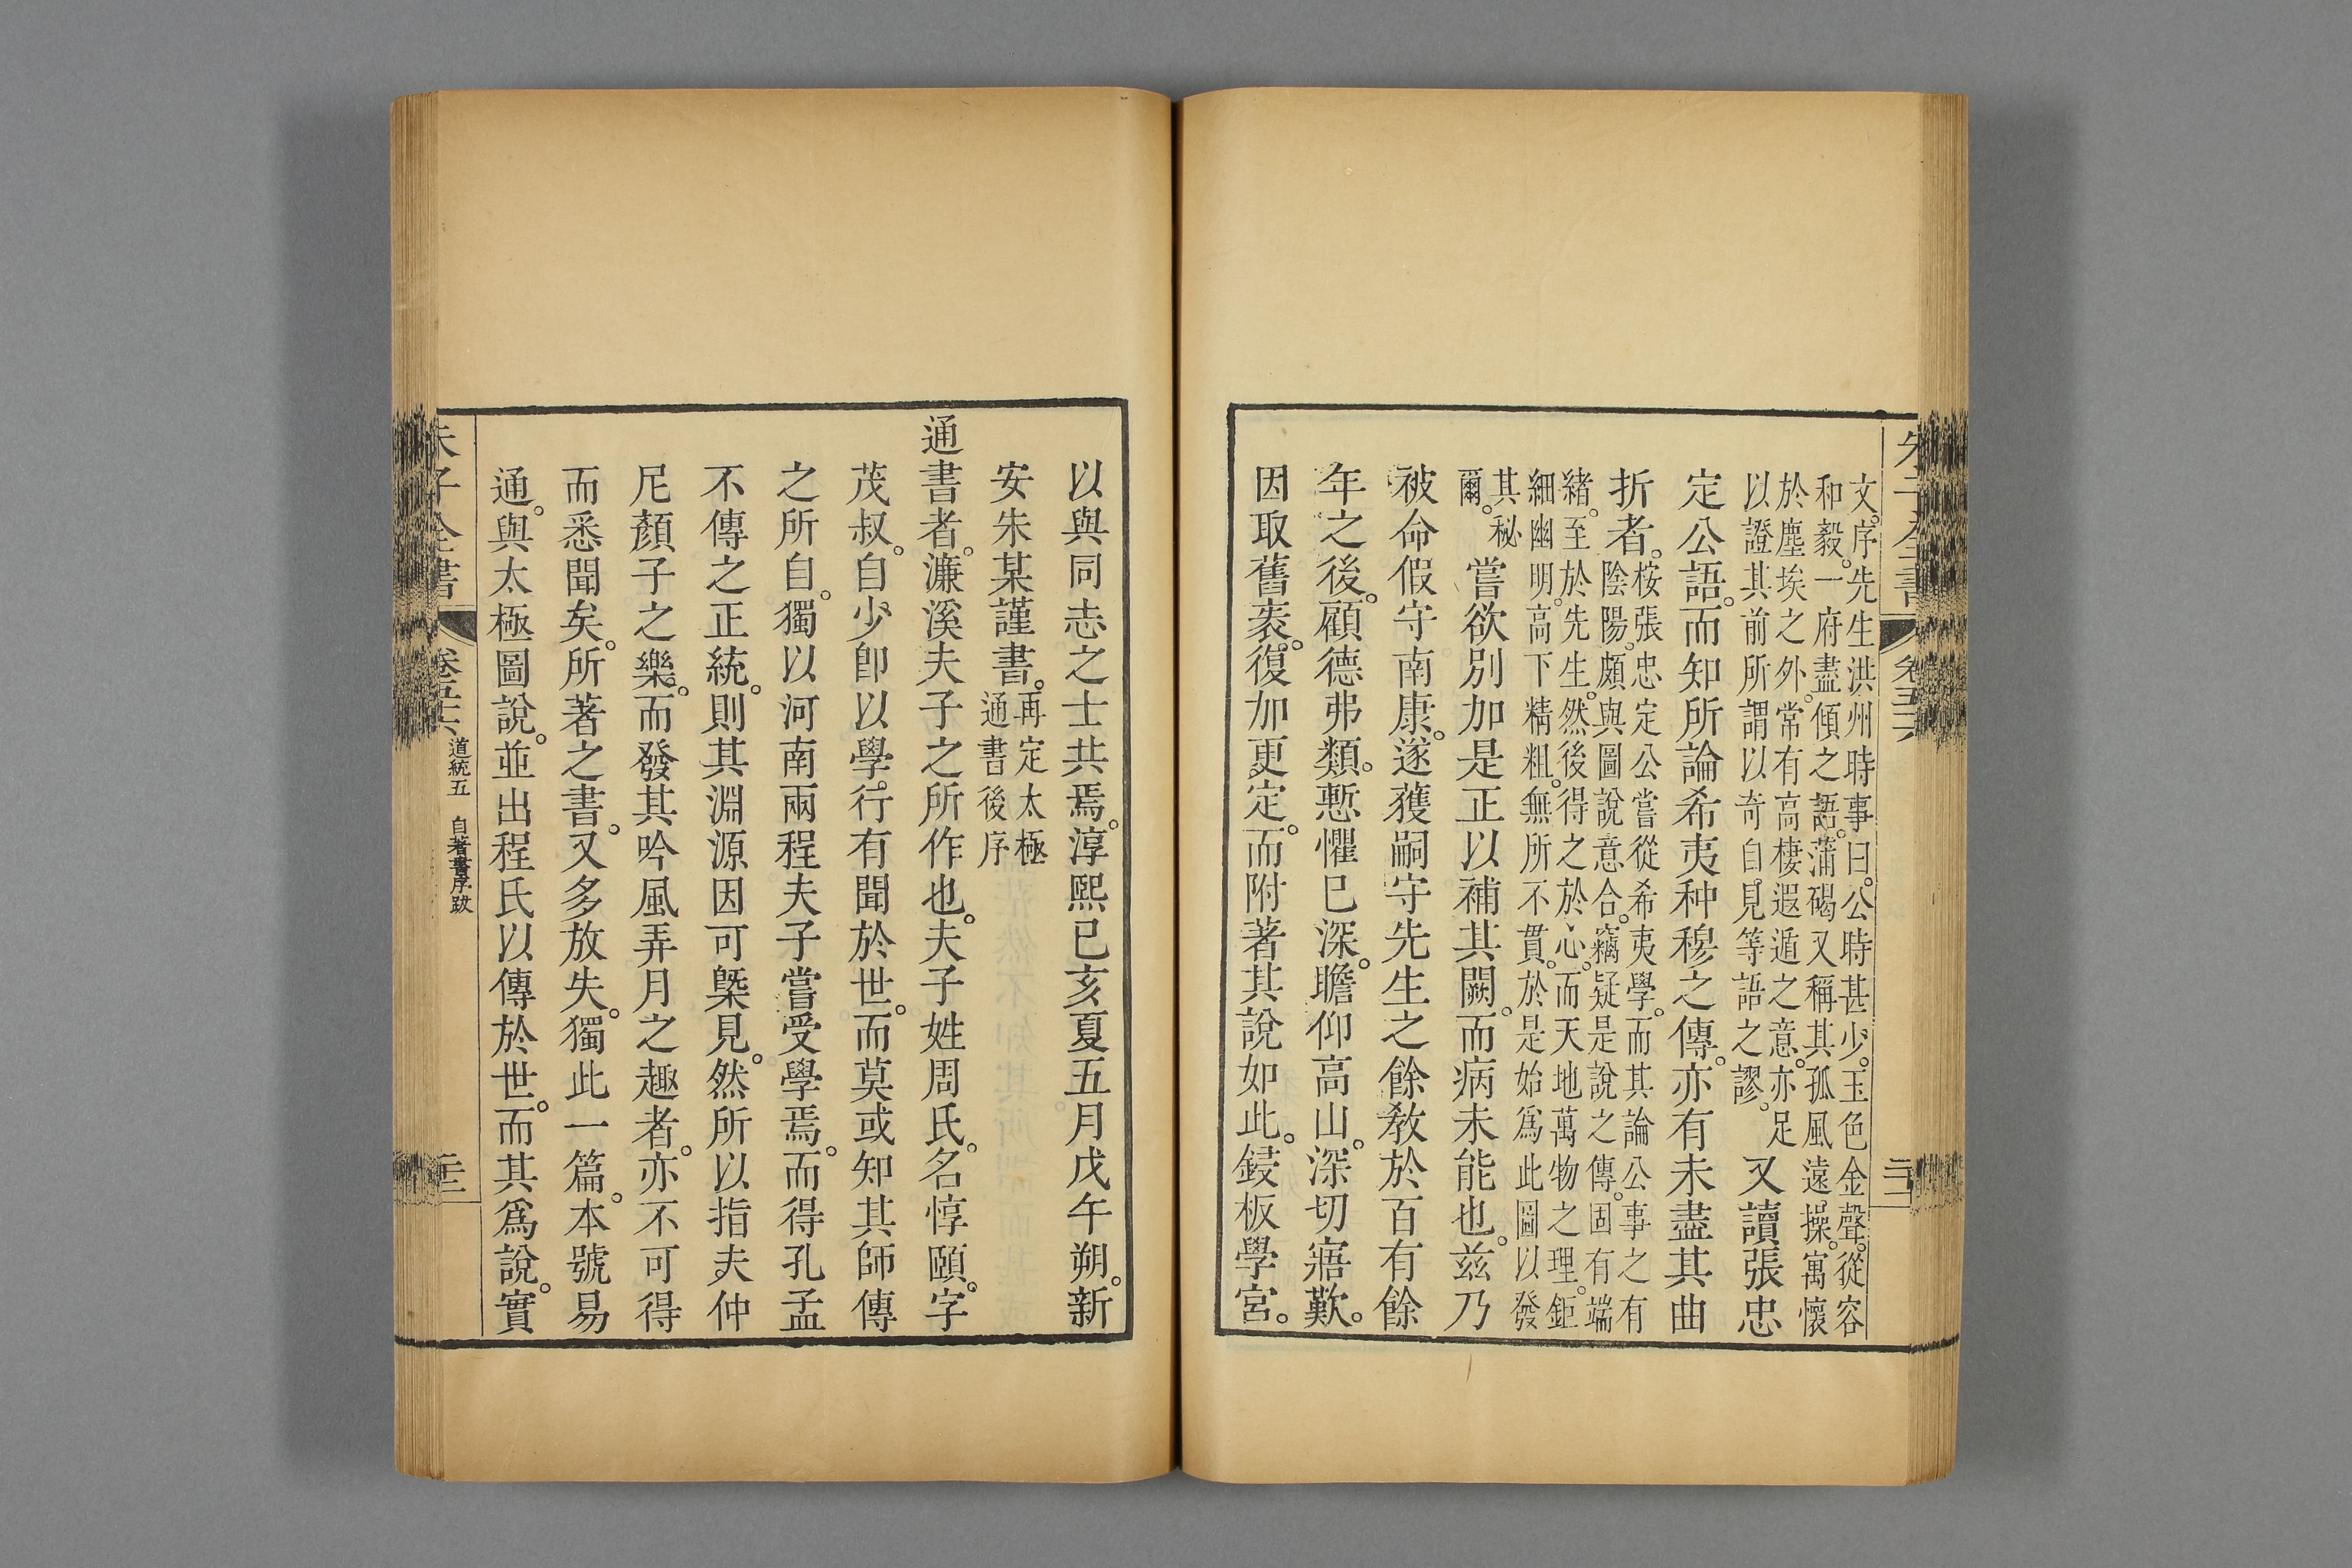 朱子全書
卷五十六
二十二
文序先生洪州時事曰公時甚少玉色金聲從容
和毅一府盡傾之語蒲碣又稱其孤風遠操寓懷
於塵埃之外常有高棲遐遁之意亦足
以證其前所謂以奇自見等語之謬
又讀張忠
定公語而知所論希夷种穆之傳亦有未盡其曲
折者
桉張忠定公嘗從希夷學而其論公事之有
陰陽頗與圖說意合竊疑是說之傳固有端
緒至於先生然後得之於心而天地萬物之理鉅
細幽明高下精粗無所不貫於是始爲此圖以發
其秘
爾
嘗欲別加是正以補其闕而病未能也兹乃
被命假守南康遂獲嗣守先生之餘敎於百有餘
年之後顧德弗類慙懼已深瞻仰高山深切寤歎
因取舊袠復加更定而附著其說如此鋟板學宮
以與同志之士共焉淳熙已亥夏五月戊午朔新
安朱某謹書
再定太極
通書後序
通書者濂溪夫子之所作也夫子姓周氏名惇頤字
茂叔自少卽以學行有聞於世而莫或知其師傳
之所自獨以河南兩程夫子嘗受學焉而得孔孟
不傳之正統則其淵源因可槩見然所以指夫仲
尼顏子之樂而發其吟風弄月之趣者亦不可得
而悉聞矣所著之書又多放失獨此一篇本號易
通與太極圖說並出程氏以傳於世而其爲說實
朱子全書
卷五十六
道統五 自著書序跋
二十三